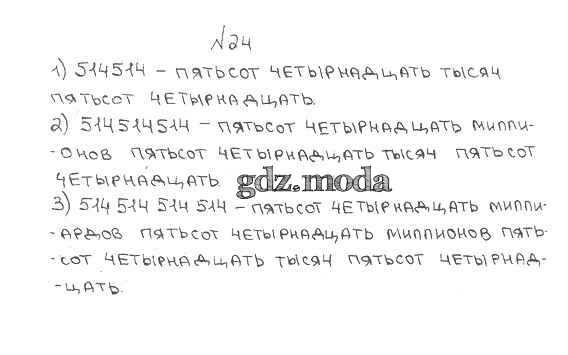 №24
1) 514514 – ПЯТЬСОТ ЧЕТЫРНАДЦАТЬ ТЫСЯЧ
ПЯТЬСОТ ЧЕТЫРНАДЦАТЬ.
2) 514514514 – ПЯТЬСОТ ЧЕТЫРНАДЦАТЬ МИЛЛИ-
-ОНОВ ПЯТЬСОТ ЧЕТЫРНАДЦАТЬ ТЫСЯЧ ПЯТЬСОТ
ЧЕТЫРНАДЦАТЬ. gdz.moda
3) 514 514 514 514 – ПЯТЬСОТ ЧЕТЫРНАДЦАТЬ МИЛЛИ-
-АРДОВ ПЯТЬСОТ ЧЕТЫРНАДЦАТЬ МИЛЛИОНОВ ПЯТЬ-
-СОТ ЧЕТЫРНАДЦАТЬ ТЫСЯЧ ПЯТЬСОТ ЧЕТЫРНАД-
-ЦАТЬ.